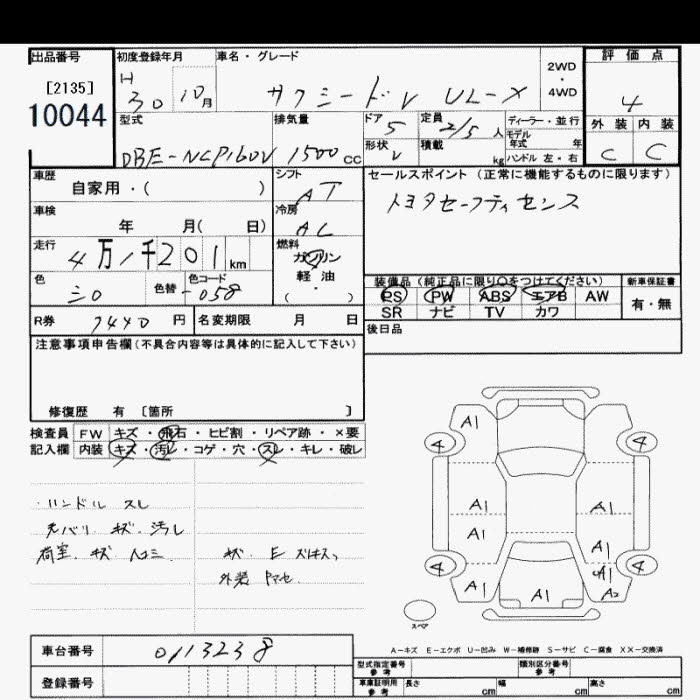 出品番号
[2135]
10044
初度登録年月
H 30 10月
車名・グレード
サクシードV UL-X
2WD
・
4WD
評価点
4
外装 内装
C C
型式
DBE-NCP160V
排気量
1500cc
ドア 5
形状 V
定員 2/5人
積載 kg
ディーラー・並行
モデル年式 年
ハンドル 左・右
車歴
自家用・( )
シフト
AT
セールスポイント (正常に機能するものに限ります)
トヨタセーフティセンス
車検
年 月( 日)
冷房
AC
走行
4万1千201km
燃料
ガソリン
軽油
・
( )
色
シロ
色替
色コード
-058
装備品 (純正品に限り○をつけてください)
PS PW ABS エアB AW
SR ナビ TV カワ
新車保証書
有・無
R券 7440円
名変期限 月 日
後日品
注意事項申告欄(不具合内容等は具体的に記入して下さい)
修復歴 有 [箇所 ]
検査員 FW キズ・飛石・ヒビ割・リペア跡・×要
記入欄 内装 キズ・汚レ・コゲ・穴・スレ・キレ・破レ
・ハンドル スレ
キズ 汚レ
荷室 キズ ヘコミ
キズ E
外装
A1
4 4
A1 A1
A1 A1
4 4
A1 A1 A1 A2
スペア
A-キズ E-エクボ U-凹み W-補修跡 S-サビ C-腐食 XX-交換済
車台番号 0113238
登録番号
型式指定番号
参考
類別区分番号
参考
車庫証明用
参考
長さ cm 幅 cm 高さ cm